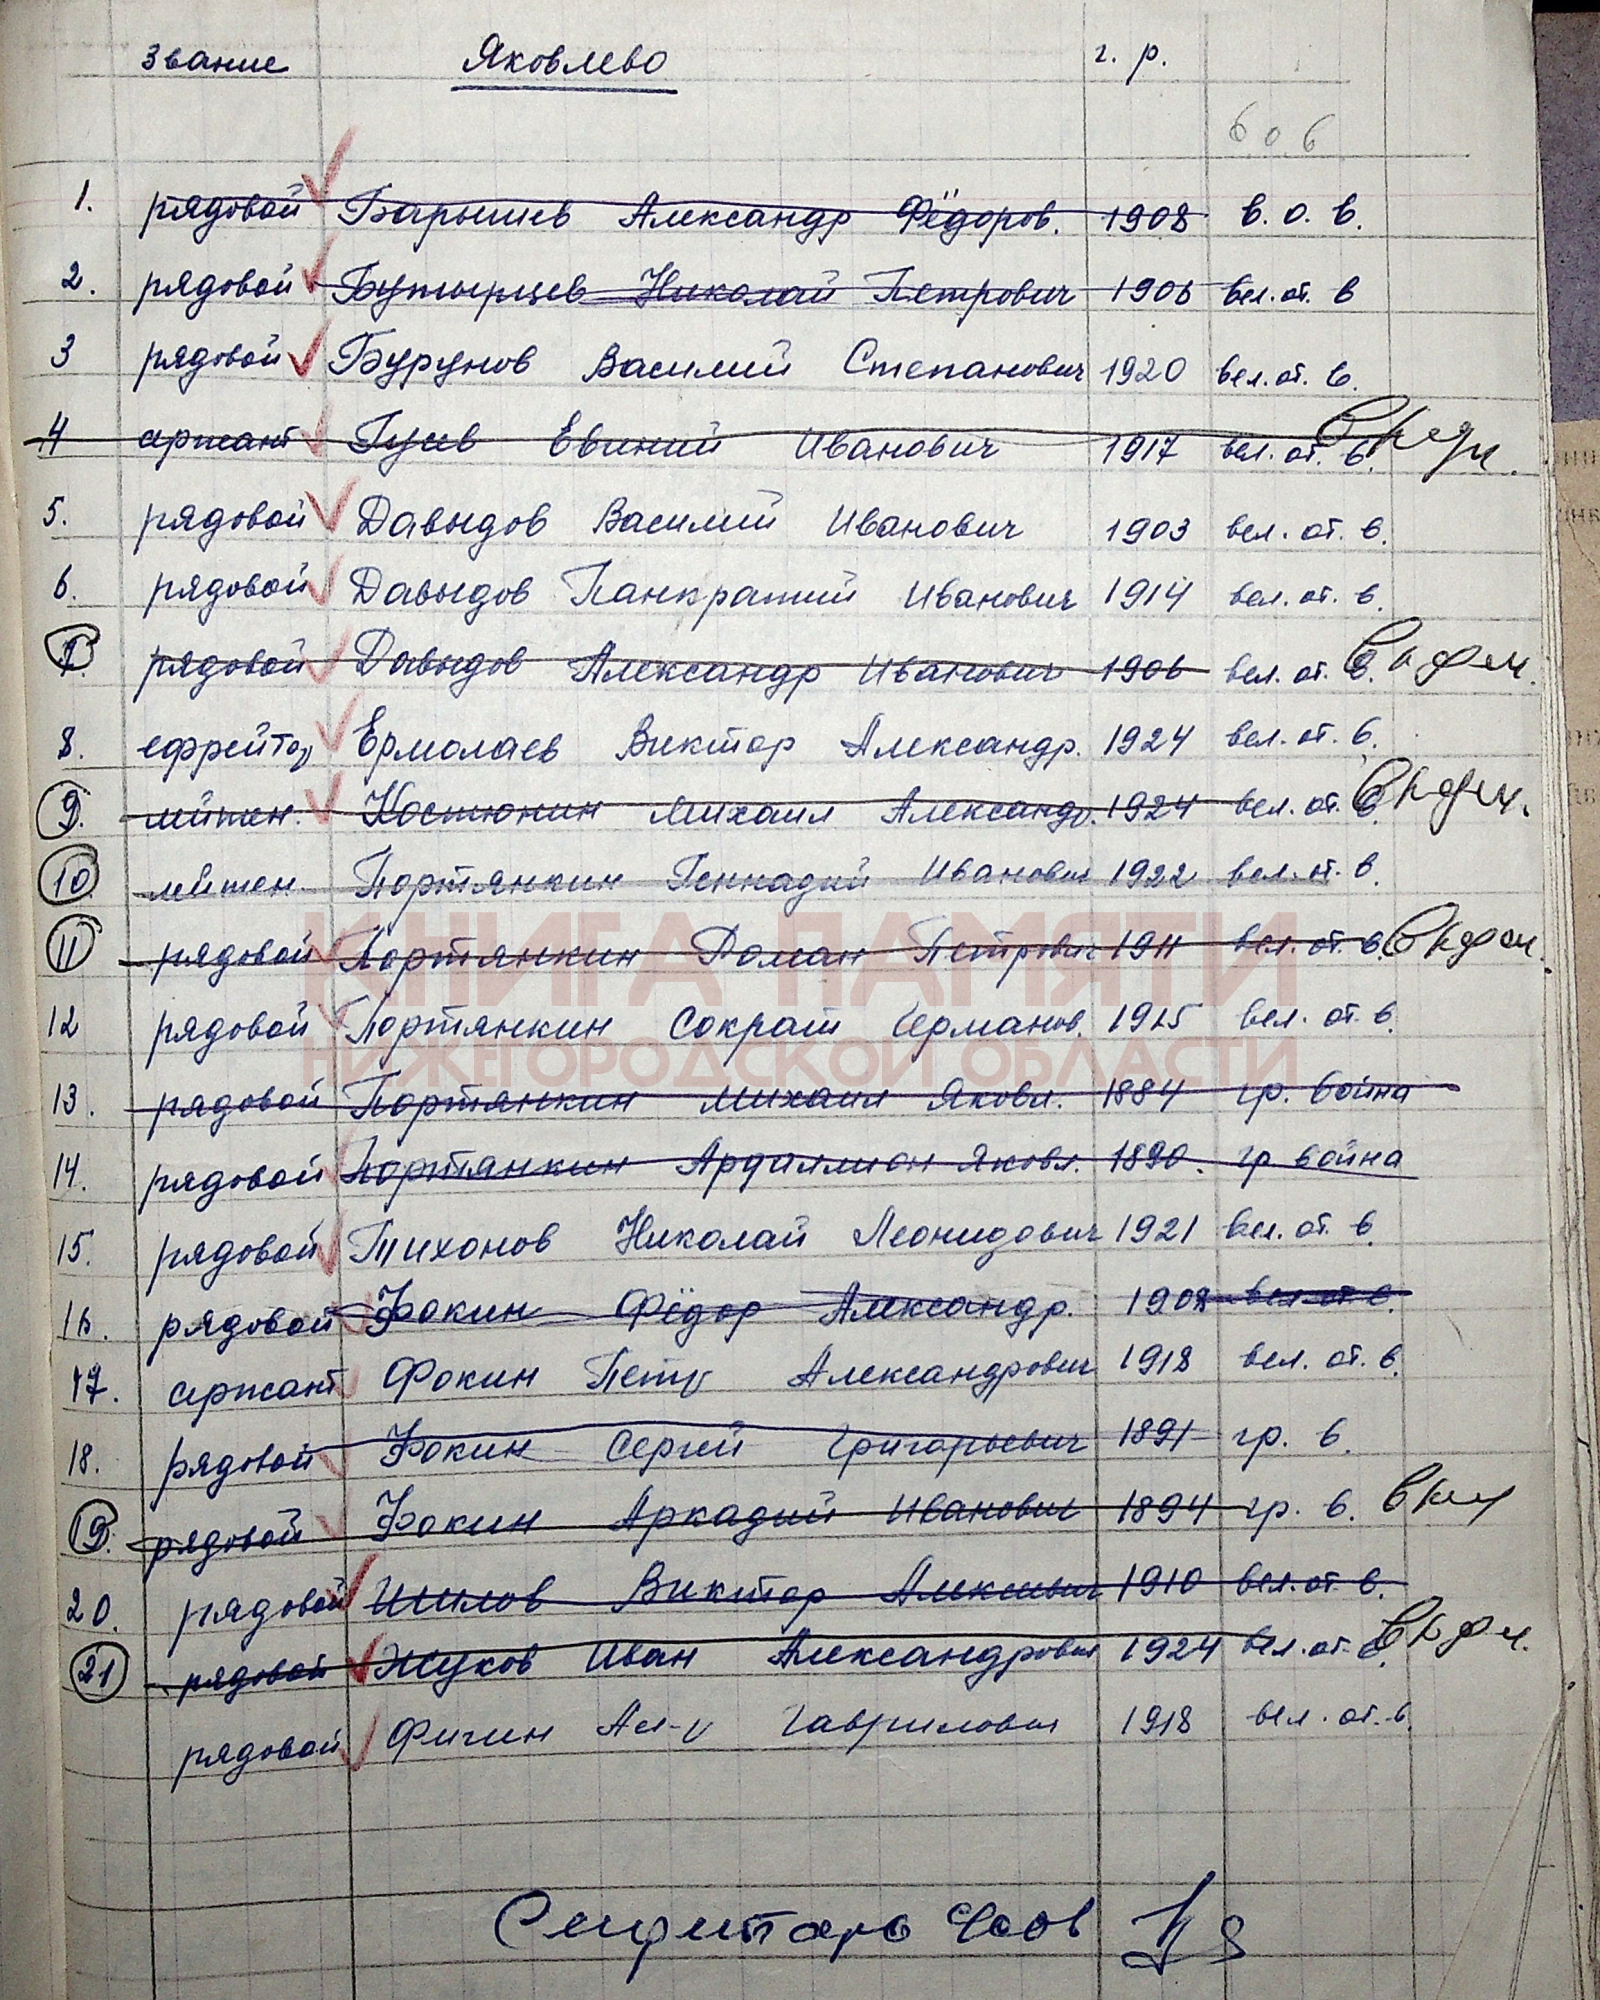 звание Яковлево г. р.
в о в
1. рядовой Барышев Александр Фёдоров. 1908 в. о. в.
2. рядовой Бутырцев Николай Петрович 1906 вел. от. в
3 рядовой Бурунов Василий Степанович 1920 вел. от. в.
4 сержант Гусев Евгений Иванович 1917 вел. от. в.
5. рядовой Давыдов Василий Иванович 1903 вел. от. в.
6. рядовой Давыдов Панкратий Иванович 1914 вел. от. в.
7. рядовой Давыдов Александр Иванович 1906 вел. от. в.
8. ефрейтор Ермолаев Виктор Александр. 1924 вел. от. в.
9. лейтен. Костюнин Михаил Александр. 1924 вел. от. в.
10. лейтен. Портянкин Геннадий Иванович 1922 вел. от. в.
11 рядовой Портянкин Роман Петрович 1911 вел. от. в.
КНИГА ПАМЯТИ
12 рядовой Портянкин Сократ Германов. 1915 вел. от. в.
НИЖЕГОРОДСКОЙ ОБЛАСТИ
13. рядовой Портянкин Михаил Яковл. 1884 гр. война
14. рядовой Портянкин Ардаллион Яковл. 1890. гр война
15. рядовой Тихонов Николай Леонидович 1921 вел. от. в.
16. рядовой Фокин Фёдор Александр. 1908 вел. от. в.
17. сержант Фокин Петр Александрович 1918 вел. от. в.
18. рядовой Фокин Сергей Григорьевич 1891 гр. в.
19. рядовой Фокин Аркадий Иванович 1894 гр. в.
20. рядовой Шилов Виктор Алексеевич 1910 вел. от. в.
21 рядовой Жуков Иван Александрович 1924 вел. от. в.
рядовой Фигин Ал-р Гаврилович 1918 вел. от. в.
Секретарь